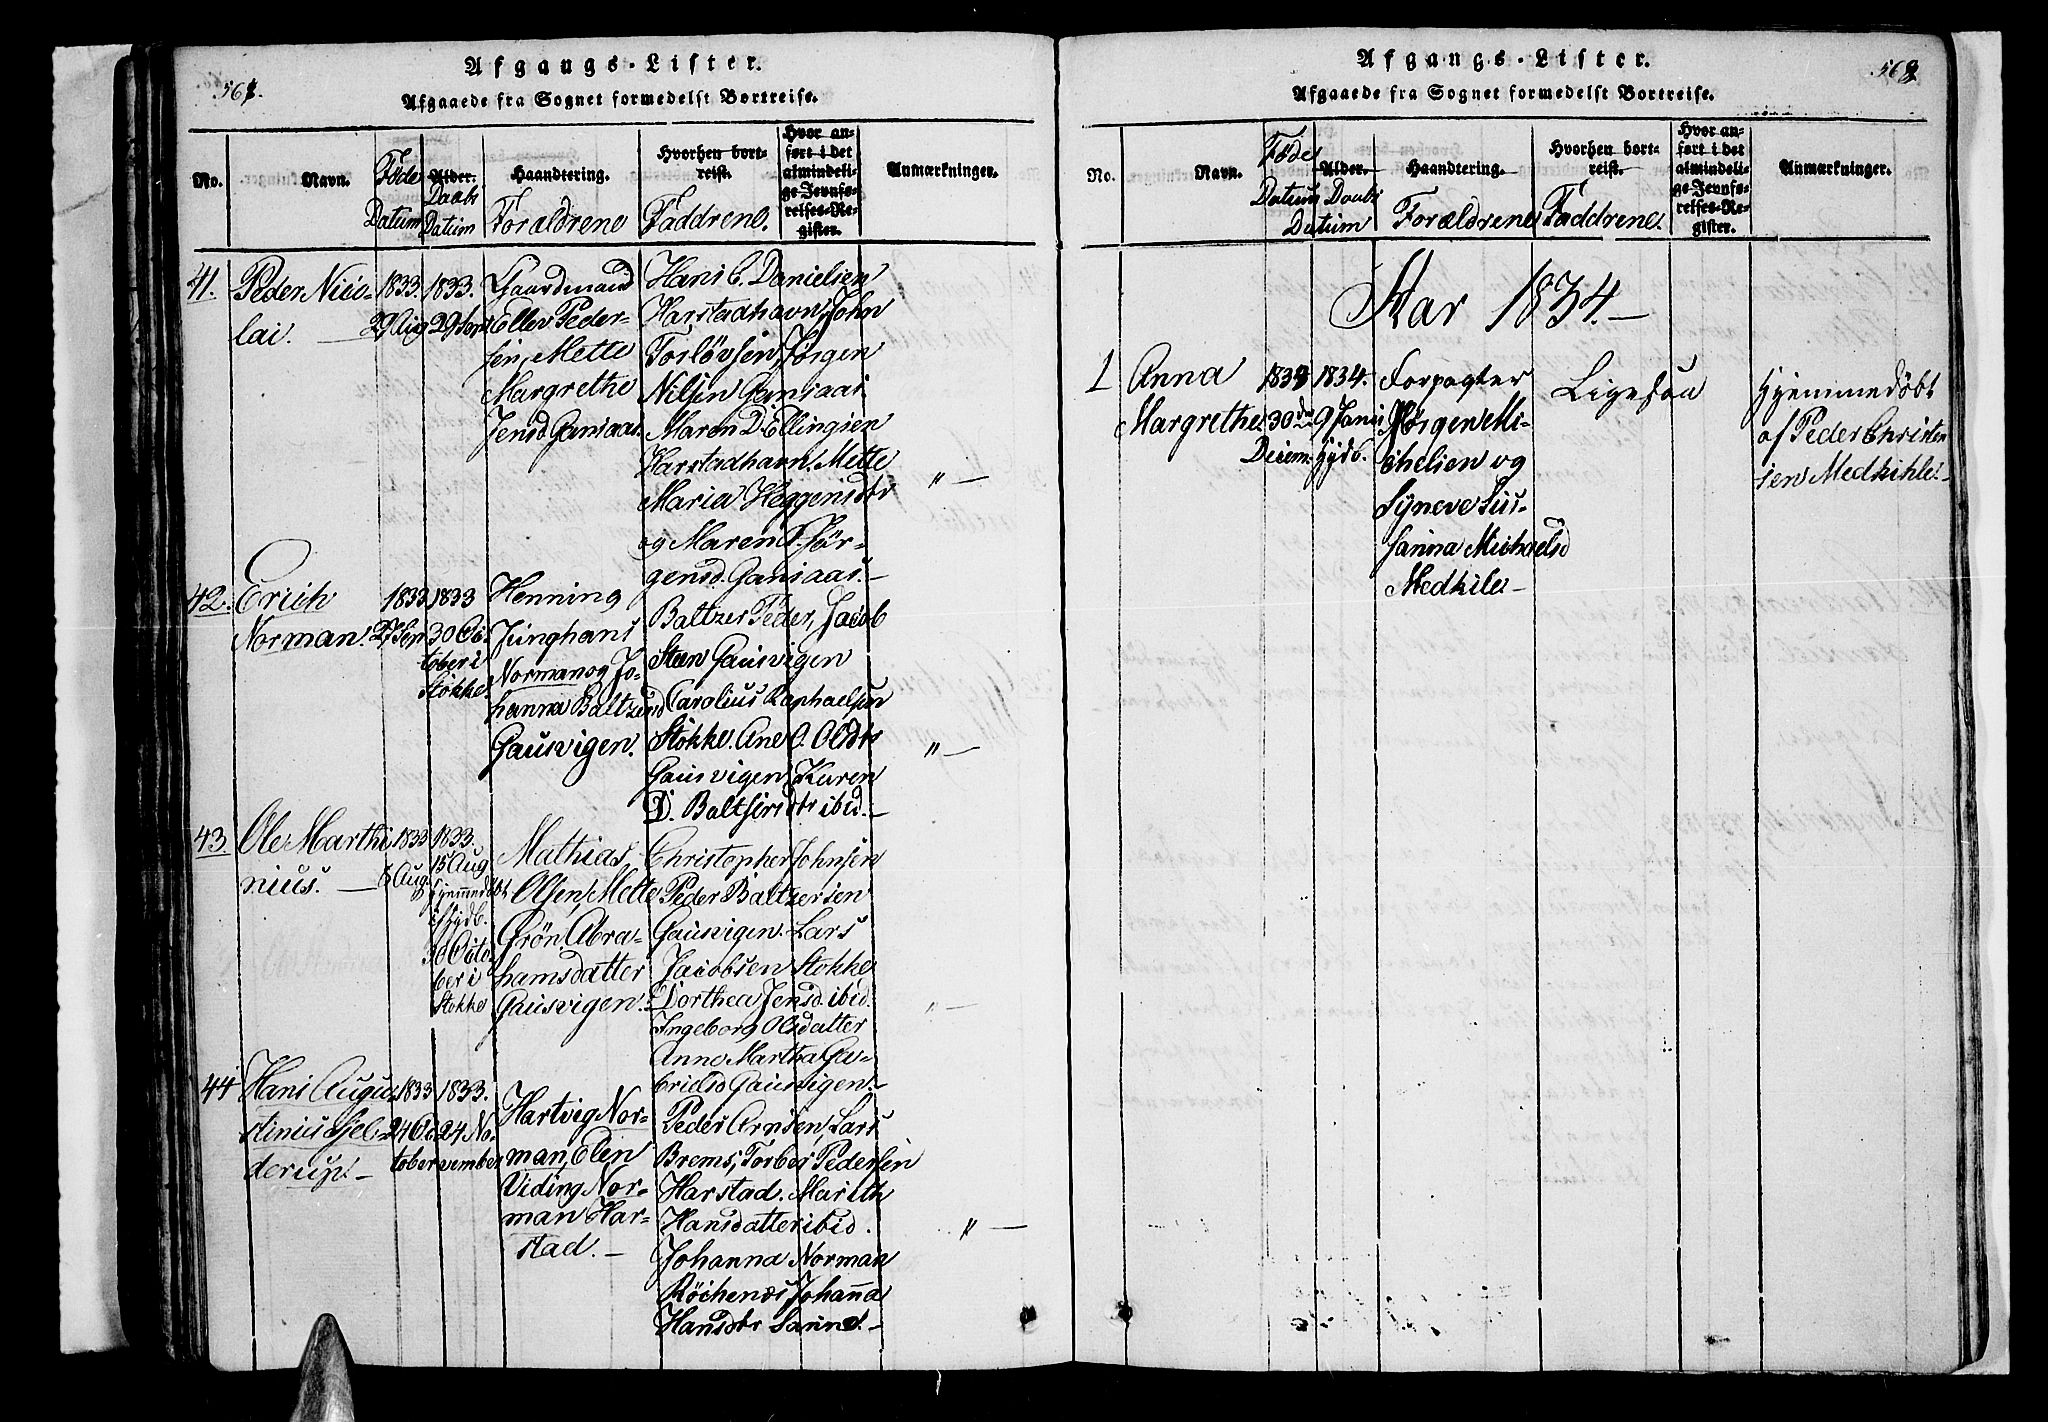 Afgangs-Lister.
561.
Afgaaede fra Sognet formedelst Bortreise.
No.
Navn.
Føde
Datum
Alder.
Daabs
Datum
Haandtering.
Forældrene
Hvorhen bort-
reist.
Faddrene.
Hvor an-
ført i det
almindeli-
ge Jevnfø-
relses-Re-
gister.
Anmærkninger.
41.
Peder Nico-
lai. —
1833.
29 Aug
1833.
29 Sept
Gaardmand
Eller Peder-
sen, Mette
Margrethe
Jensd Gansaas.
Hans C. Danielsen
Harstadhavn, John
Torløvsen, Jørgen
Nilsen Gansaas
Maren D. Ellingsen
Harstadhavn. Mette
Maria Heggensdtr
og Maren S. Jør-
gensd. Gansaas. —
" —
42.
Erich
Norman.
1833
27 Sep
1833
30 Oc-
tober i
Stokke.
Henning
Junghans
Norman og Jo-
hanna Baltzersd
Gausvigen.
Baltzer Peder, Jacob
Steen Gausvigen
Carolius Raphaelsen
Stokke. Ane O. Oldtr
Gausvigen, Karen
D. Baltsersdtr ibid. —
" —
43.
Ole Marthi
nius. —
1833
8 Aug.
1833.
15 Aug
Hjemmedøbt
i Hydb.
30 Octo-
ber i
Stokke
Mathias
Olsen, Mette
Grøn Abra-
hamsdatter
Gausvigen.
Christopher Johnsen
Peder Baltzersen
Gausvigen. Lars
Jacobsen Stokke
Dorthea Jensd. ibid.
Ingeborg Olsdatter
Anne Martha Ga-
brielsd Gausvigen. —
" —
44
Hans Augu-
stinus Hjel-
derup. —
1833
24 Oc-
tober
1833.
24 No-
vember
Hartvig Nor-
man, Elen
Viding Nor-
man Har-
stad. —
Peder Arnsen, Lars
Brems, Torber Pedersen
Harstad. Marith
Hansdatter ibid.
Johanna Norman
Røchenæs Johanna
Hansdtr Sannd. —
" —
Afgangs-Lister.
562
Afgaaede fra Sognet formedelst Bortreise.
No.
Navn.
Føde
Datum
Alder.
Daabs
Datum
Haandtering.
Forældrene
Hvorhen bort-
reist.
Faddrene.
Hvor an-
ført i det
almindeli-
ge Jevnfø-
relses-Re-
gister.
Anmærkninger.
Aar 1834. —
1
Anna
Margrethe
1833
30de
Decem.
1834.
9 Jani
Hydb.
Forpagter
Jørgen Mi-
chelsen og
Syneve Sus-
sanna Michaelsd
Medkile —
Ligesaa
Hjemmedøbt
af Peder Christen
sen Medkihle. —